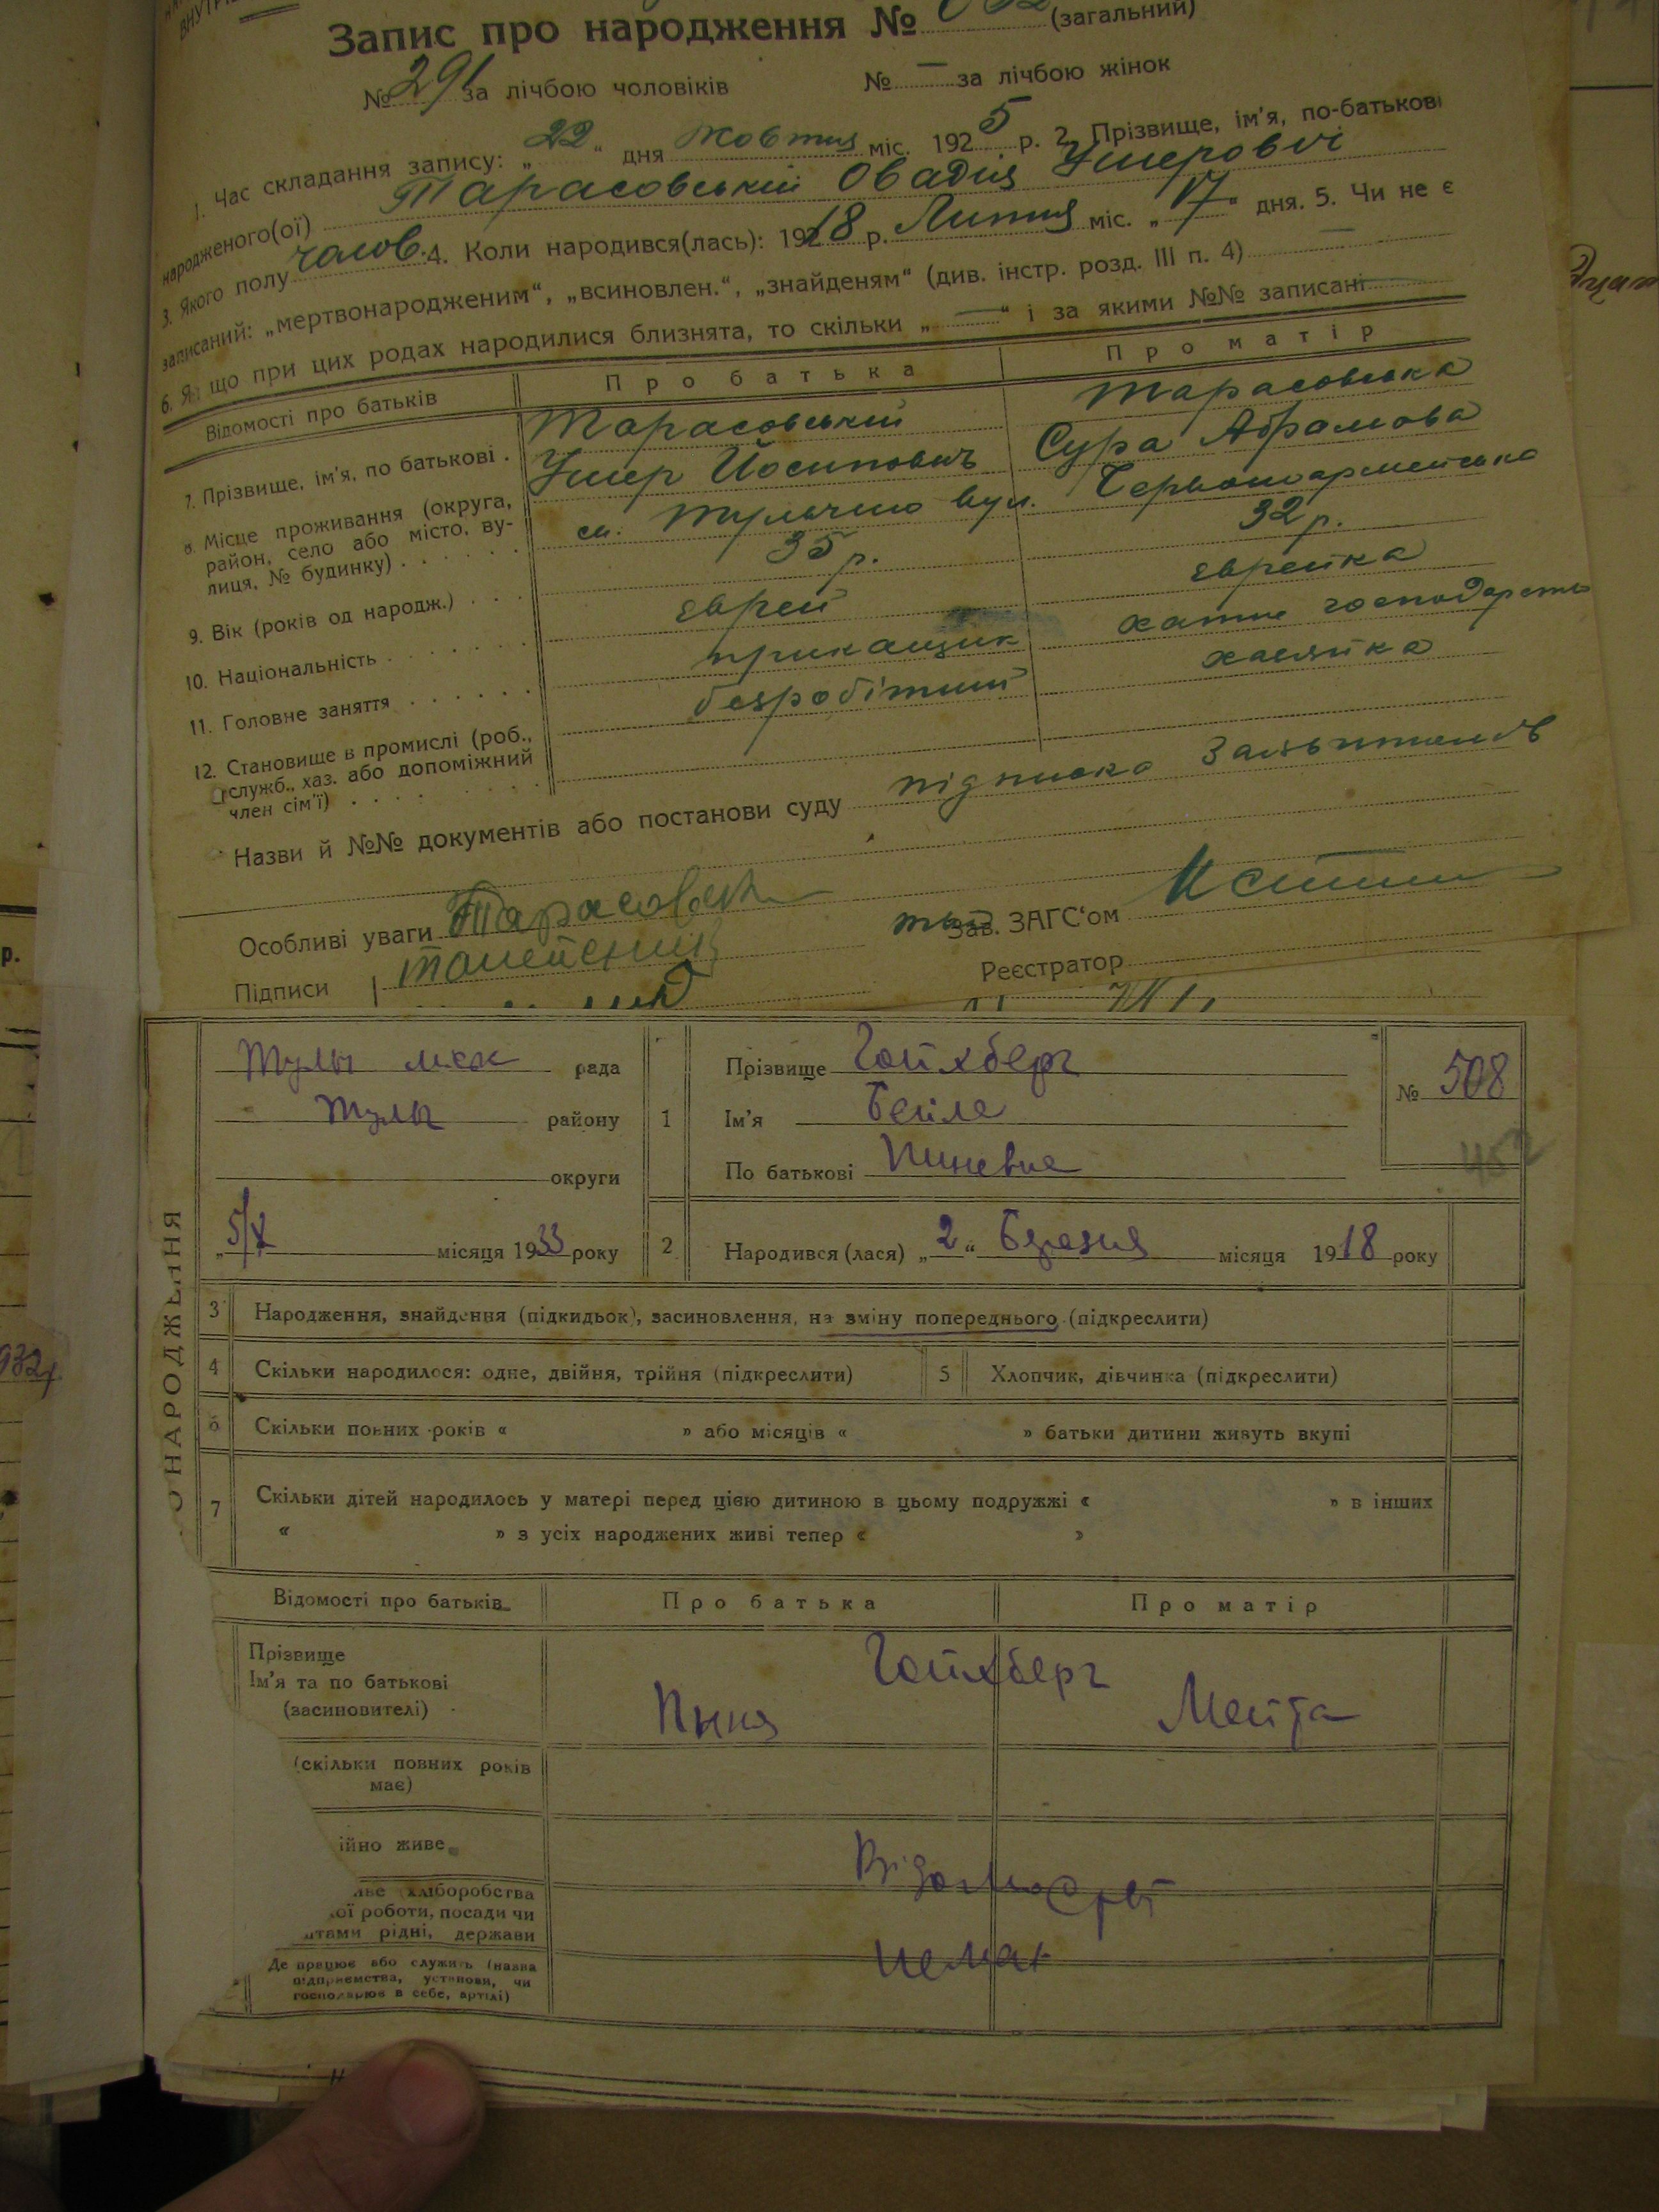 Запис про народження № (загальний)
№ 291 за лічбою чоловіків № — за лічбою жінок
1. Час складання запису: „22“ дня Жовтня міс. 1925 р. 2. Прізвище, ім'я, по-батькові
народженого(ої) Тарасовський Овадія Умерович
3. Якого полу чолов. 4. Коли народився(лась): 1918 р. Липня міс. „17“ дня. 5. Чи не є
записаний: „мертвонародженим“, „всиновлен.“, „знайденям“ (див. інстр. розд. III п. 4) —
6. Як що при цих родах народилися близнята, то скільки „—“ і за якими №№ записані
Відомості про батьків Про батька Про матір
7. Прізвище, ім'я, по батькові . Тарасовський Умер Йосипович Тарасовська Сура Абрамова
8. Місце проживання (округа,
район, село або місто, ву-
лиця, № будинку) . . . . . . м. Тульчин вул. Червоноармейська
9. Вік (років од народж.) . . . 35 р. 32 р.
10. Національність . . . . . . . еврей еврейка
11. Головне заняття . . . . . . прикащик хатне господарство
12. Становище в промислі (роб.,
служб., хаз. або допоміжний
член сім'ї) . . . . . . . . безробітний хазяйка
Назви й №№ документів або постанови суду підписка
Особливі уваги
Підписи
Зав. ЗАГС'ом
Реєстратор
Тульч рада
Тульч району
округи
„5/X місяця 1933 року
1 Прізвище Гойхберг
Ім'я Бейла
По батькові Пиневна
№ 508
2 Народився (лася) „2“ Березня місяця 1918 року
О НАРОДЖЕННЯ
3 Народження, знайдення (підкидьок), засиновлення, на зміну попереднього (підкреслити)
4 Скільки народилося: одне, двійня, трійня (підкреслити) 5 Хлопчик, дівчинка (підкреслити)
6 Скільки повних років « » або місяців « » батьки дитини живуть вкупі
7 Скільки дітей народилось у матері перед цією дитиною в цьому подружжі « » в інших
« » з усіх народжених живі тепер « »
Відомості про батьків Про батька Про матір
Прізвище Гойхберг
Ім'я та по батькові Пиня Мейта
(засиновителі)
(скільки повних років
має)
ійно живе
хліборобства
ої роботи, посади чи
штами рідні, держави
Де працює або служить (назва
підприємства, установи, чи
господарює в себе, артілі)
Відомостей
немає